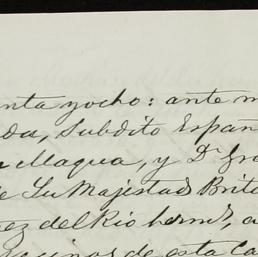 enta y ocho: ante m
da, Subdito Españ
Magua, y Dn
e Su Majestad Brita
ez del Rio herms, a
de esta Ca